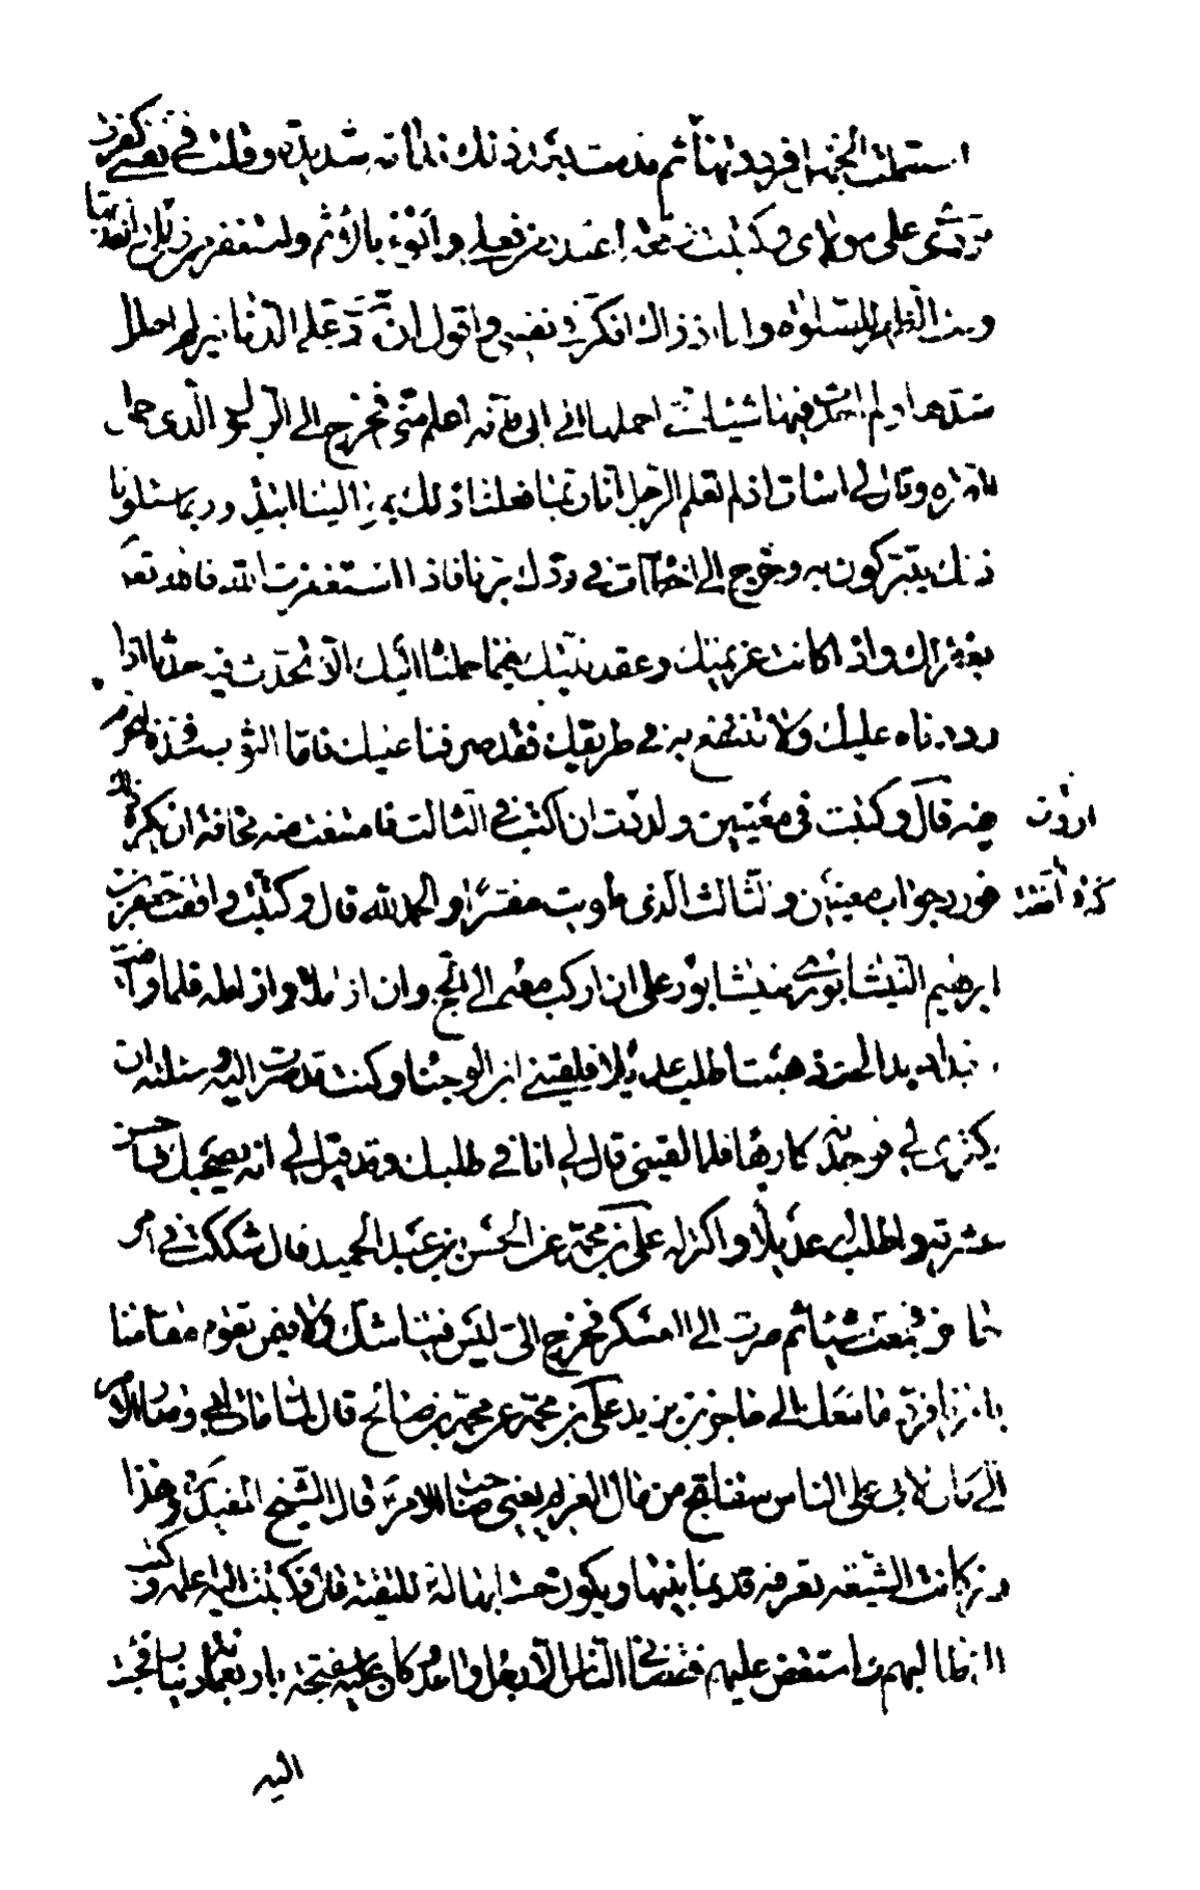 استعملت الجهل فرددتها ثم ندمت بعد ذلك ندامة شديدة وقلت في نفسي كفرت
بردي على مولاي وكتبت رقعة اعتذر من فعلي وابوء بالاثم واستغفر من ذلك وانفذتها
وقمت وانا اذ ذاك افكر في نفسي واقول ان ردت على الدنانير لم احلل
شدها ولم احدث فيها شيئا حتى احملها الى ابي فانه اعلم مني فخرج الى الرسول الذي حمل
الصرة وقال لي اسأت اذ لم تعلم الرجل انا ربما فعلنا ذلك بموالينا ابتداء وربما سئلونا
ذلك يتبركون به وخرج الي اخطأت في ردك برنا فاذا استغفرت الله فالله تعالى
يغفر لك واذا كانت عزيمتك وعقد نيتك فيما حملنا اليك الا تحدث فيه حدثا اذا
رددناه عليك ولا تنتفع به في طريقك فقد صرفنا عنك فاما الثوب فخذه لتحرم
فيه قال وكتبت في معنيين واردت ان اكتب في الثالث فامتنعت منه مخافة ان يكره ذلك
اردت
فورد جواب معنيين والثالث الذي طويت مفسرا والحمد لله قال وكنت وافقت جعفر بن
ابرهيم النيشابوري بنيشابور على ان اركب معه الى الحج وازامله فلما وافيت
بغداد بدا لي وذهبت اطلب عديلا فلقيني ابن الوجنا وكنت قد صرت اليه وسئلته ان
يكتري لي فوجدته كارها فلما لقيني قال لي انا في طلبك وقد قيل لي انه يصحبك فاحسن
عشرته واطلب له عديلا واكتر له علي بن محمد عن الحسن بن عبد الحميد قال شككت في امر
حاجز فجمعت شيئا ثم صرت الى العسكر فخرج الي ليس فينا شك ولا فيمن يقوم مقامنا
بامرنا فرد ما معك الى حاجز بن يزيد علي بن محمد عن محمد بن صالح قال لما مات ابي وصار الامر
الي كان لابي على الناس سفاتج من مال الغريم يعني صاحب الامر قال الشيخ المفيد وهذا
رمز كانت الشيعة تعرفه قديما بينها ويكون خطابها له للتقية قال فكتبت اليه اعلمه فكتب
الي طالبهم واستقض عليهم فقضاني الناس الا رجل واحد وكان عليه سفتجة باربعمائة دينار فجئت
اليه